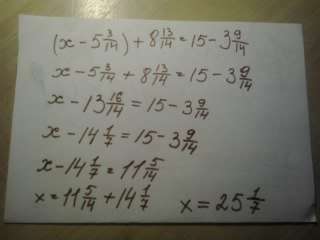 (x - 5 3/14) + 8 13/14 = 15 - 3 9/14
x - 5 3/14 + 8 13/14 = 15 - 3 9/14
x - 13 16/14 = 15 - 3 9/14
x - 14 1/7 = 15 - 3 9/14
x - 14 1/7 = 11 5/14
x = 11 5/14 + 14 1/7 x = 25 1/7